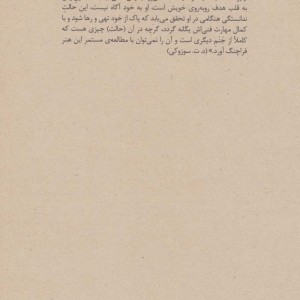 به قلب هدف روبه‌روی خویش است. او به خود آگاه نیست، این حالتِ
ندانستگی هنگامی در او تحقق می‌یابد که پاک از خود تهی و رها شود و با
کمال مهارت فنی‌اش یگانه گردد، گرچه در آن (حالت) چیزی هست که
کاملاً از خَنم دیگری است و آن را نمی‌توان با مطالعه‌ی مستمر این هنر
فراچنگ آورد.» (د. ت. سوزوکی)